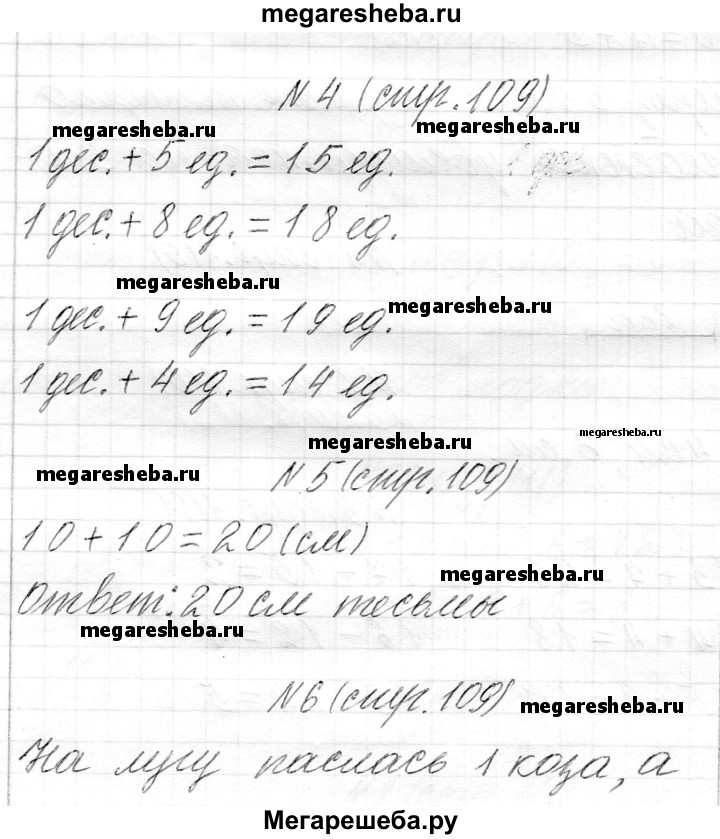 megaresheba.ru
N 4 (стр. 109)
megaresheba.ru
megaresheba.ru
1 дес. + 5 ед. = 15 ед.
1 дес. + 8 ед. = 18 ед.
megaresheba.ru
megaresheba.ru
1 дес. + 9 ед. = 19 ед.
1 дес. + 4 ед. = 14 ед.
megaresheba.ru
megaresheba.ru
megaresheba.ru
N 5 (стр. 109)
10 + 10 = 20 (см)
megaresheba.ru
Ответ: 20 см тесьмы
megaresheba.ru
N 6 (стр. 109)
megaresheba.ru
На лугу паслась 1 коза, а
Мегарешеба.ру